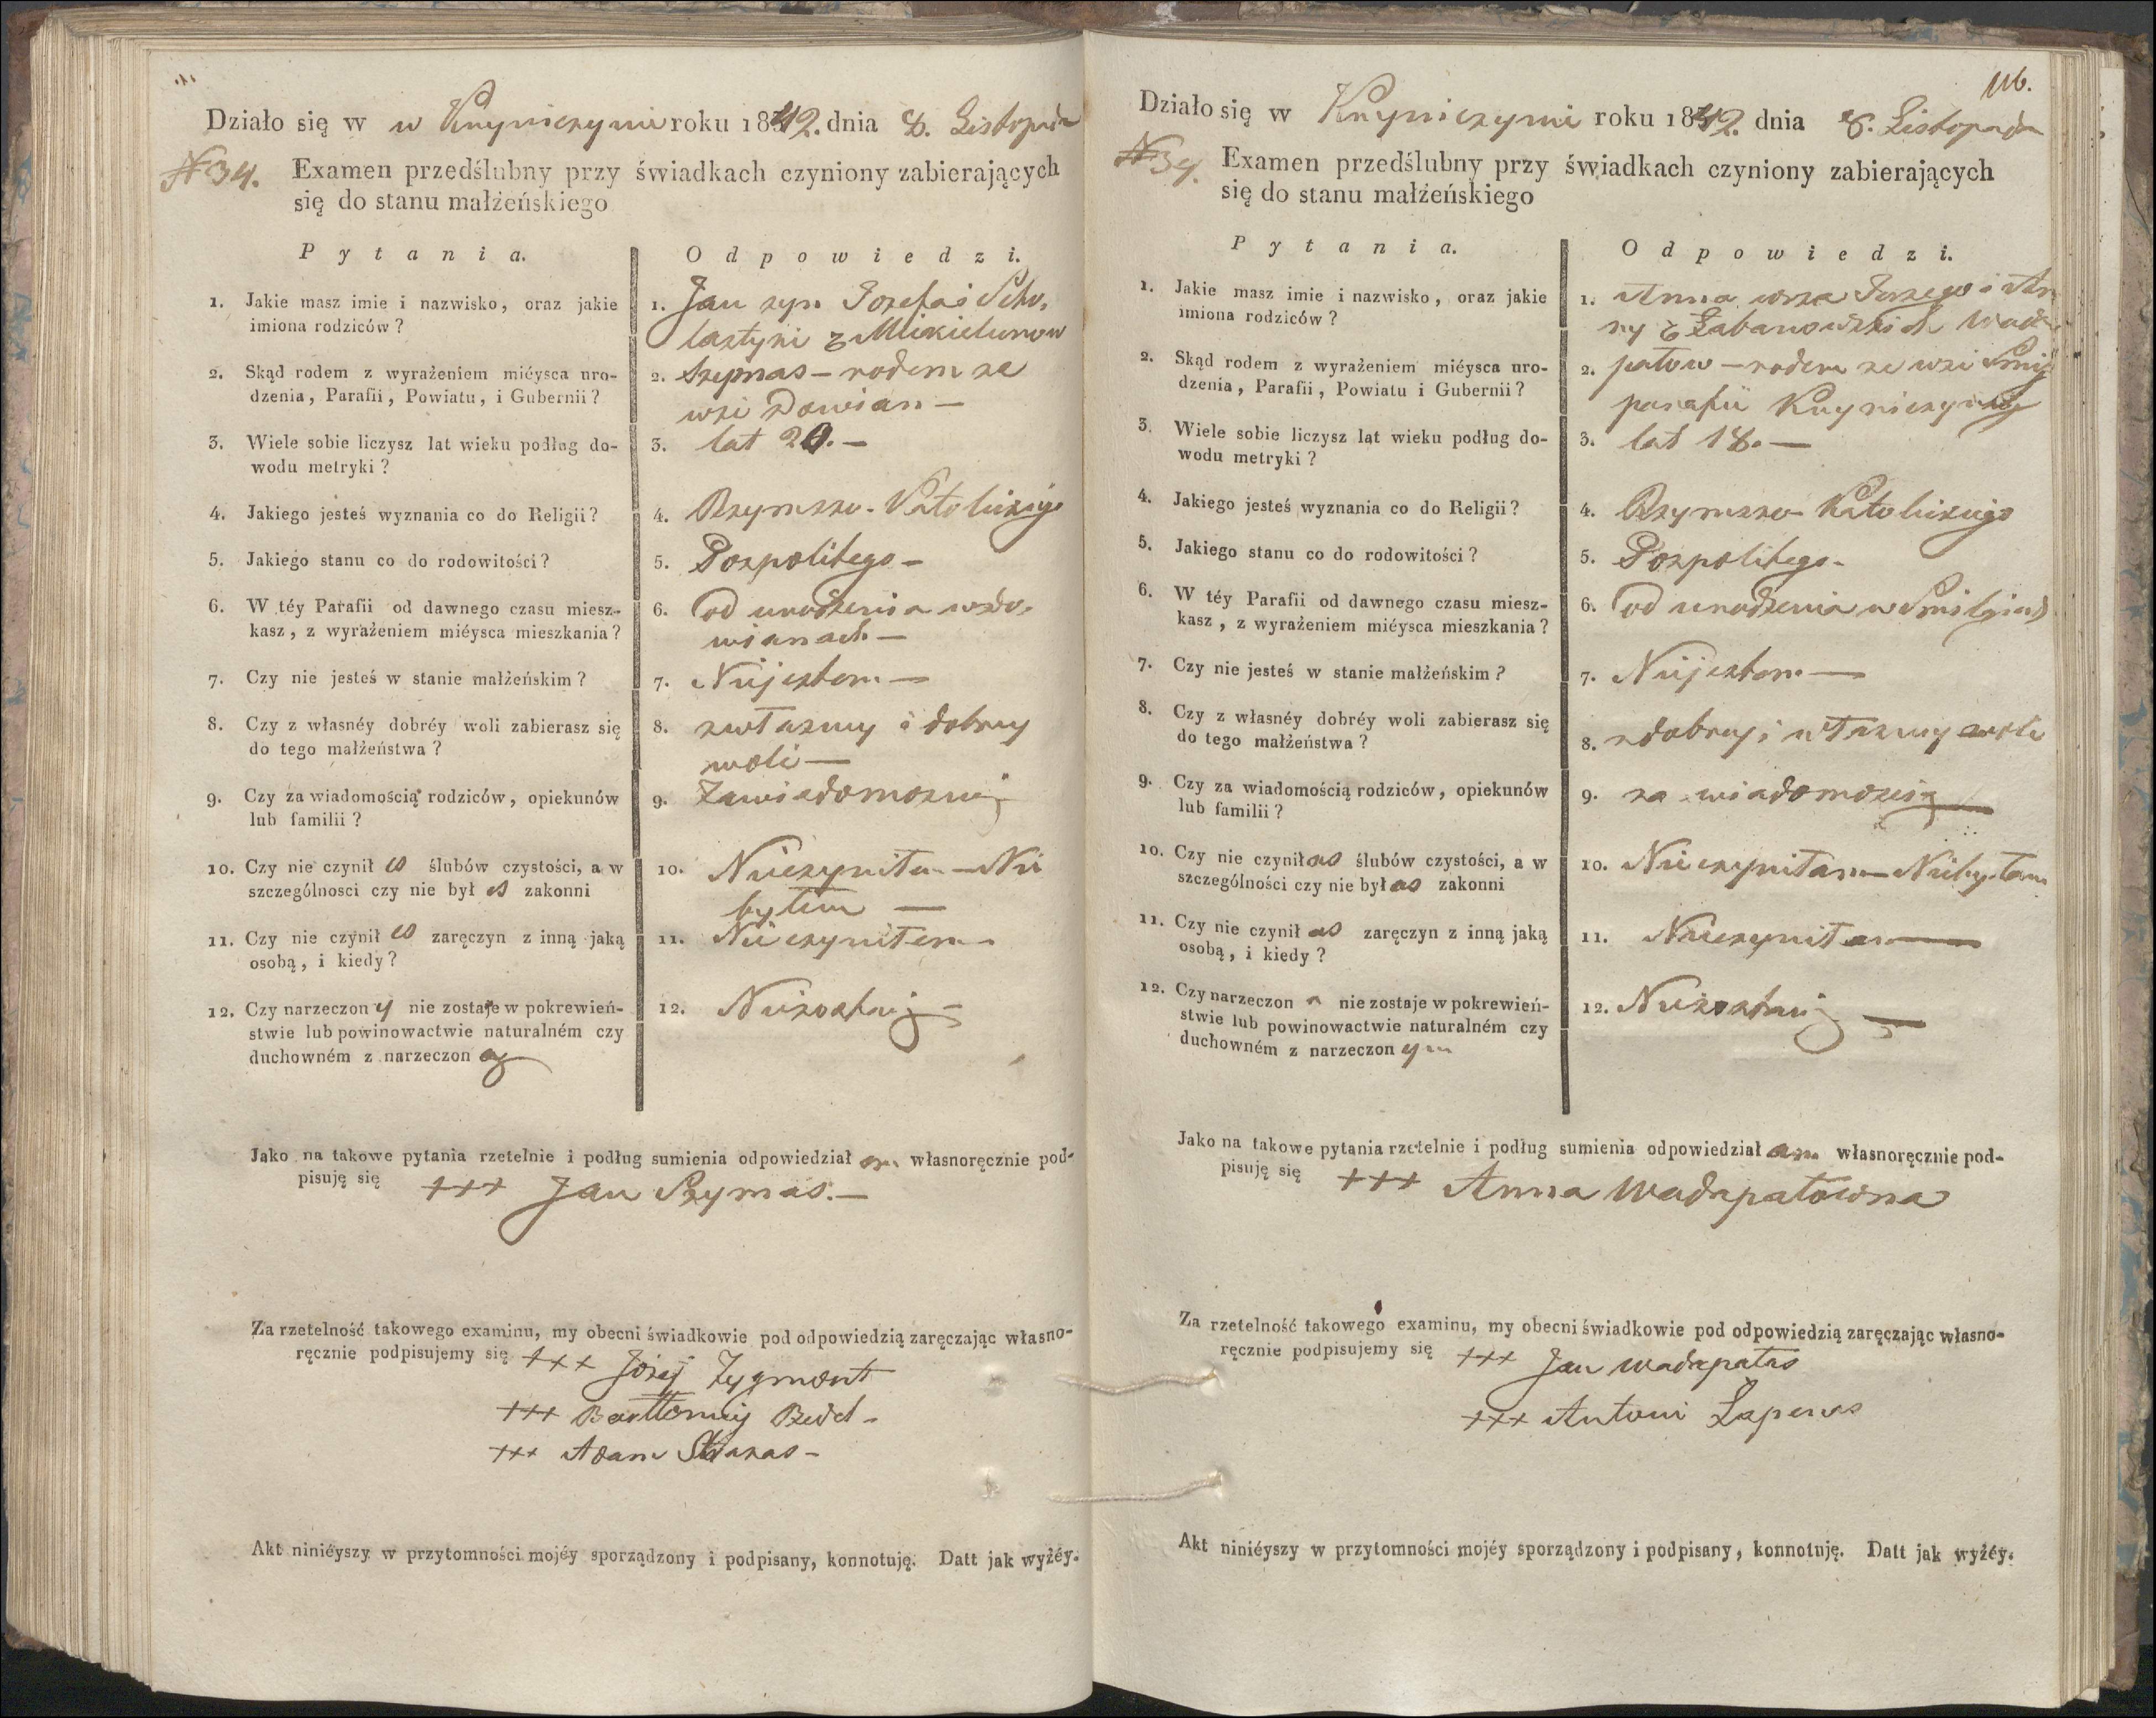 Działo się w w Knyniczynie roku 1842. dnia 8. Listopada
N 34. Examen przedślubny przy świadkach czyniony zabierających
się do stanu małżeńskiego
Pytania. Odpowiedzi.
1. Jakie masz imie i nazwisko, oraz jakie
imiona rodziców?
1. Jan syn Jozefa i Scho,
lastyki z
2. Skąd rodem z wyrażeniem miéysca uro-
dzenia, Parafii, Powiatu, i Gubernii?
2. Szymas – rodem ze
wsi Dowian –
3. Wiele sobie liczysz lat wieku podług do-
wodu metryki?
3. lat 20. –
4. Jakiego jesteś wyznania co do Religii?
4. Rzymsko-Katolickiego
5. Jakiego stanu co do rodowitości?
5. Pospolitego –
6. W téy Parafii od dawnego czasu miesz-
kasz, z wyrażeniem miéysca mieszkania?
6. od urodzenia w Do,
wianach –
7. Czy nie jesteś w stanie małżeńskim?
7. Niejestem –
8. Czy z własnéy dobréy woli zabierasz się
do tego małżeństwa?
8. z własney i dobrey
woli –
9. Czy za wiadomością rodziców, opiekunów
lub familii?
9. Zawiadomością
10. Czy nie czynił es ślubów czystości, a w
szczególnosci czy nie był es zakonni
10. Nieczyniłem – Nie
byłem –
11. Czy nie czynił es zaręczyn z inną jaką
osobą, i kiedy?
11. Nieczyniłem –
12. Czy narzeczon y nie zostaje w pokrewień-
stwie lub powinowactwie naturalném czy
duchowném z narzeczon ą
12. Niezostaię –
Jako na takowe pytania rzetelnie i podług sumienia odpowiedział em własnoręcznie pod-
pisuję się +++ Jan Szymas. –
Za rzetelność takowego examinu, my obecni świadkowie pod odpowiedzią zaręczając własno-
ręcznie podpisujemy się +++ Jozef Zygmont
+++ Bartłomiej –
+++ Adam –
Akt niniéyszy w przytomności mojéy sporządzony i podpisany, konnotuję. Datt jak wyżéy.
116.
Działo się w Knyniczynie roku 1842. dnia 8. Listopada
N 34. Examen przedślubny przy świadkach czyniony zabierających
się do stanu małżeńskiego
Pytania. Odpowiedzi.
1. Jakie masz imie i nazwisko, oraz jakie
imiona rodziców?
1. Anna corka Jerzego i An
ny z Łabanowskich Wada,
2. Skąd rodem z wyrażeniem miéysca uro-
dzenia, Parafii, Powiatu i Gubernii?
2. patow – rodem ze wsi
parafii
3. Wiele sobie liczysz lat wieku podług do-
wodu metryki?
3. lat 18. –
4. Jakiego jesteś wyznania co do Religii?
4. Rzymsko-Katolickiego
5. Jakiego stanu co do rodowitości?
5. Pospolitego –
6. W téy Parafii od dawnego czasu miesz-
kasz, z wyrażeniem miéysca mieszkania?
6. od urodzenia w
7. Czy nie jesteś w stanie małżeńskim?
7. Niejestem –
8. Czy z własnéy dobréy woli zabierasz się
do tego małżeństwa?
8. z dobrey i własney woli
9. Czy za wiadomością rodziców, opiekunów
lub familii?
9. za wiadomością –
10. Czy nie czynił as ślubów czystości, a w
szczególności czy nie był as zakonni
10. Nieczyniłam – Niebyłam
11. Czy nie czynił as zaręczyn z inną jaką
osobą, i kiedy?
11. Nieczyniłam –
12. Czy narzeczon a nie zostaje w pokrewień-
stwie lub powinowactwie naturalném czy
duchowném z narzeczon ym
12. Niezostaię –
Jako na takowe pytania rzetelnie i podług sumienia odpowiedział am własnoręcznie pod-
pisuję się +++ Anna Wadapatowna
Za rzetelność takowego examinu, my obecni świadkowie pod odpowiedzią zaręczając własno-
ręcznie podpisujemy się +++ Jan Wadapatas
+++ Antoni Łapenas
Akt niniéyszy w przytomności mojéy sporządzony i podpisany, konnotuję. Datt jak wyżéy.